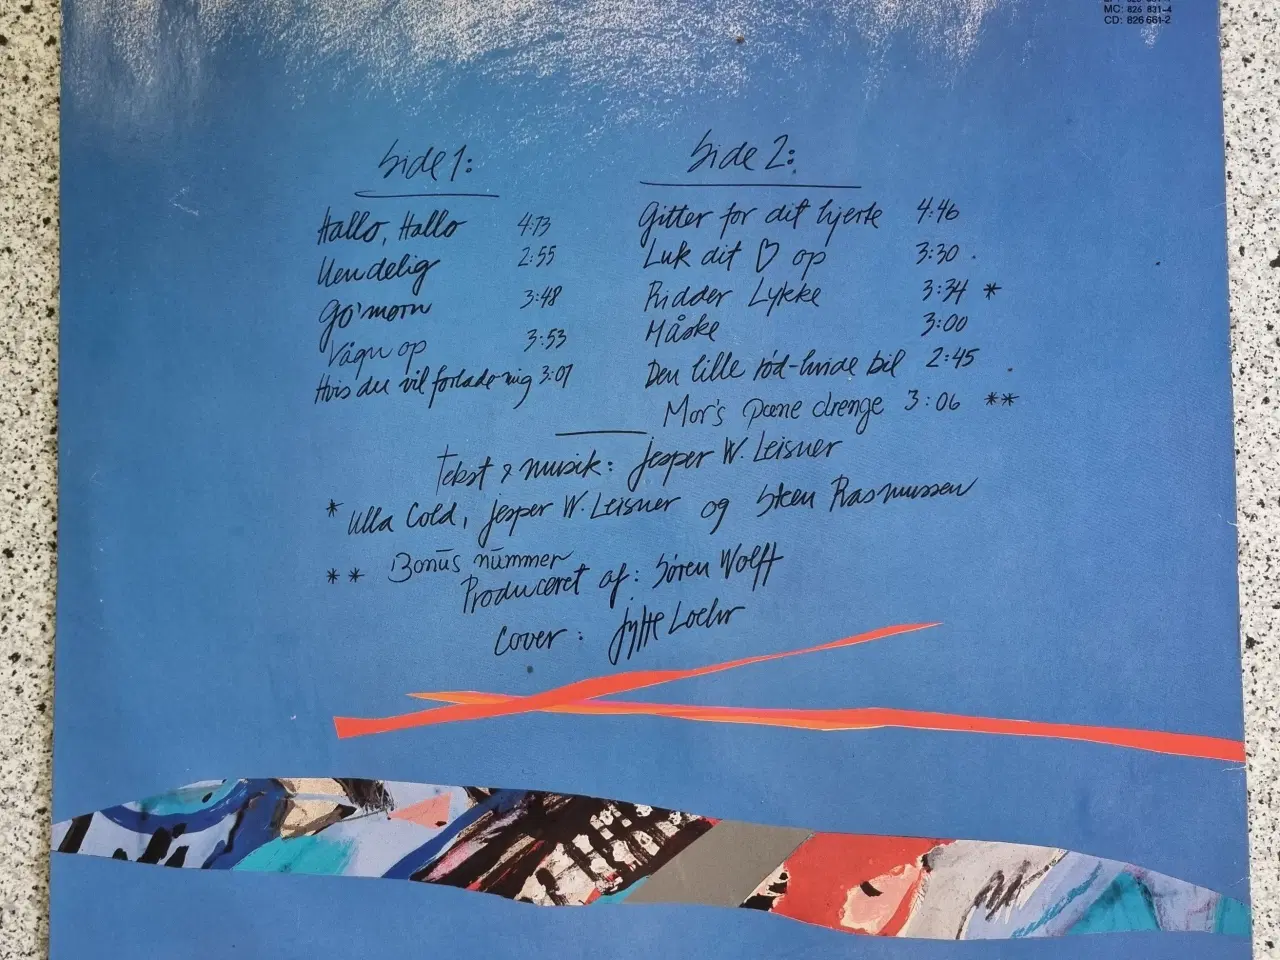 MC: 826 831-4
CD: 826 661-2
Side 1:
Hallo, Hallo 4:13
Uendelig 2:55
Go'morn 3:48
Vågn op 3:53
Hvis du vil forlade mig 3:07
Side 2:
Gitter for dit hjerte 4:46
Luk dit ♡ op 3:30
Ridder Lykke 3:34 *
Måske 3:00
Den lille rød-hvide bil 2:45
Mor's pæne drenge 3:06 **
Tekst & musik: Jesper W. Leisner
* Ulla Cold, Jesper W. Leisner og Steen Rasmussen
** Bonus nummer
Produceret af: Søren Wolff
Cover: Jytte Loehr